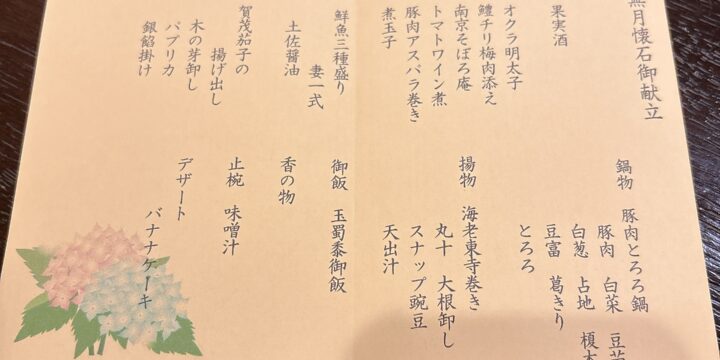 無月懐石御献立
果実酒
オクラ明太子
鱧チリ梅肉添え
南京そぼろ庵
トマトワイン煮
豚肉アスパラ巻き
煮玉子
鮮魚三種盛り
妻一式
土佐醤油
賀茂茄子の
揚げ出し
木の芽卸し
パプリカ
銀餡掛け
鍋物 豚肉とろろ鍋
豚肉 白菜 豆苗
白葱 占地 榎木
豆富 葛きり
とろろ
揚物 海老東寺巻き
丸十 大根卸し
スナップ豌豆
天出汁
御飯 玉蜀黍御飯
香の物
止椀 味噌汁
デザート
バナナケーキ